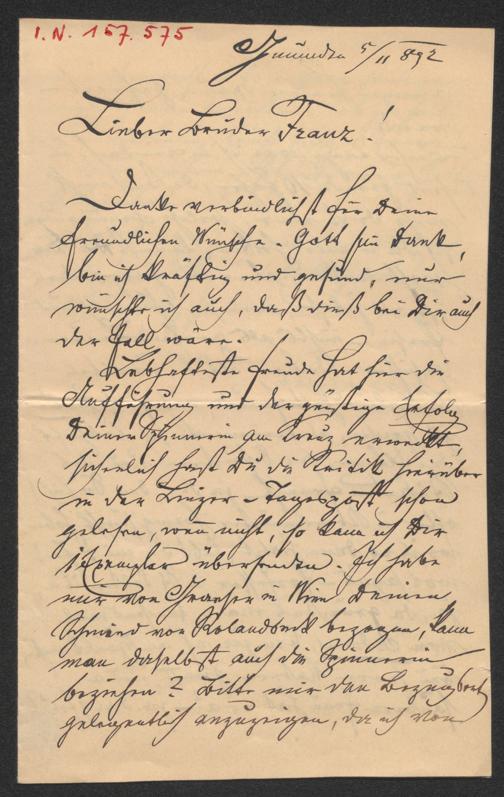 I.N. 157.575
Gmunden 5/11 892
Lieber Bruder Franz!
Danke verbindlichst für Deine
freundlichen Wünsche. Gott sei Dank,
bin ich kräftig und gesund, nur
wünschte ich auch, daß dieß bei Dir auch
der Fall wäre.
Lebhafteste Freude hat hier die
Aufführung und der günstige Erfolg
Deiner Spinnerin am Kreuz erweckt,
sicherlich hast Du die Kritik hierüber
in der Linzer-Tagespost schon
gelesen, wenn nicht, so kann ich Dir
1 Exemplar übersenden. Ich habe
mir von in Wien Deinen
Schmied von Rolandseck bezogen, kann
man daselbst auch die Spinnerin
beziehen? Bitte mir den Bezugsort
gelegentlich anzuzeigen, da ich von